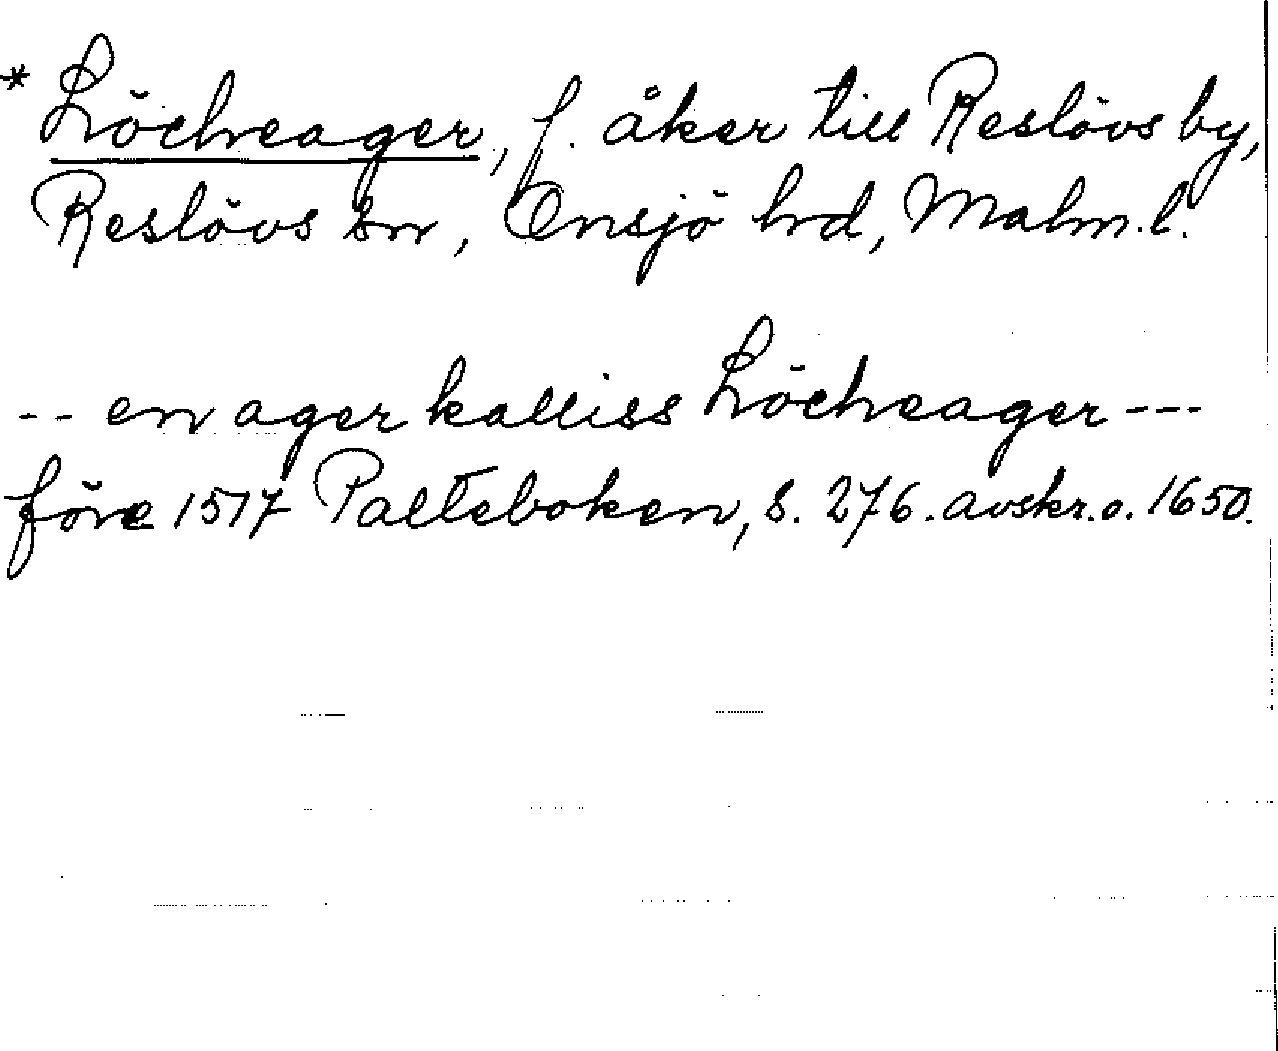 * Löcheager, f. åker till Reslövs by,
Reslövs sn, Onsjö hrd, Malm.l.
-- en ager kalliss Löcheager ---
före 1517 Palteboken, s. 276. avskr.o. 1650.